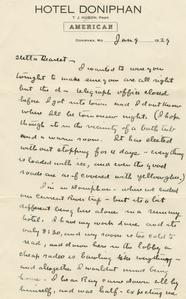 HOTEL DONIPHAN
T. J. HOBSON, PROP.
AMERICAN
DONIPHAN, MO. Jan 9 1929
Stella Dearest —
I wanted to wire you
tonight to make sure you are all right
but the d— telegraph office closed
before I got into town and I don't know
where I'll be tomorrow night. (I hope
though it's in the vicinity of a bath tub
and a warm room. It has sleeted
without stopping for 4 days — everything
is loaded with ice, and even the good
roads are as if covered with yellow glass.)
I'm in Doniphan — where we ended
our current River trip — but it's a lot
different being here alone in a
hotel. I had my work done and
only 8:30, and my room is too cold to
read, and down here in the lobby a
cheap radio is bawling like everything —
and altogether I wouldn't mind being
home. I been down all by
himself, and was half-expecting me